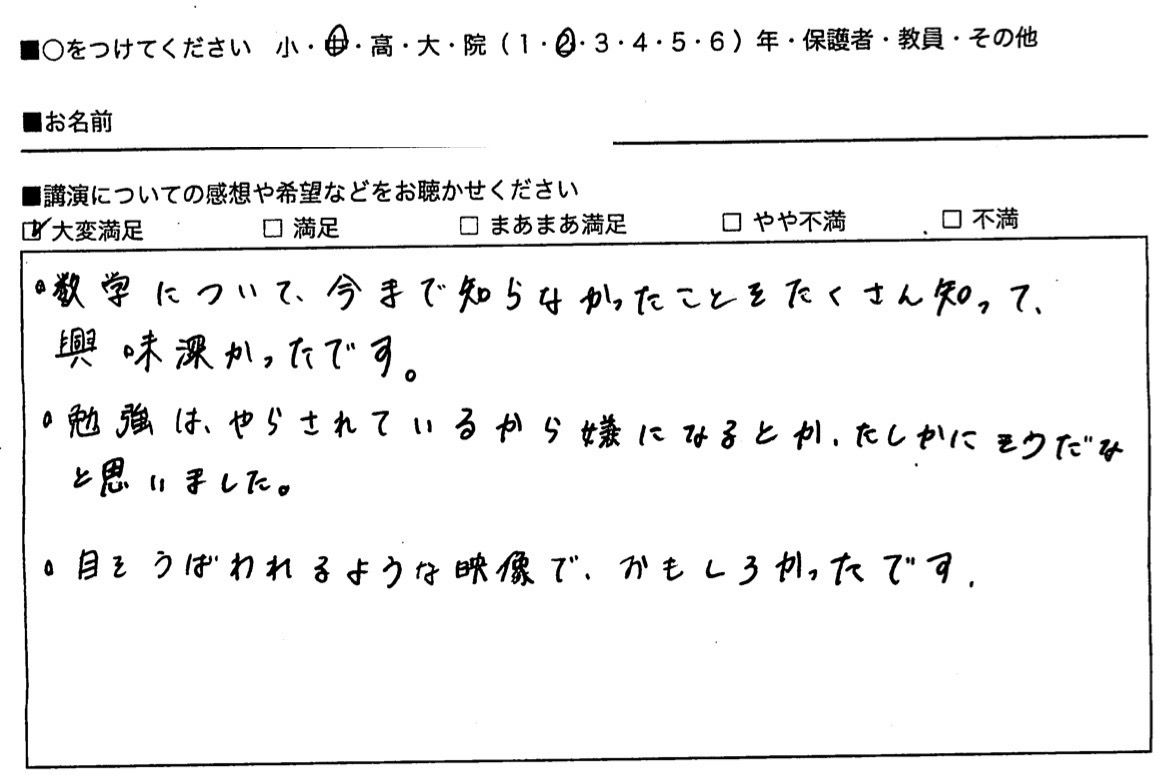 ■○をつけてください 小・中・高・大・院（1・2・3・4・5・6）年・保護者・教員・その他
■お名前
■講演についての感想や希望などをお聴かせください
☑大変満足 □満足 □まあまあ満足 □やや不満 □不満
○数学について、今まで知らなかったことをたくさん知って、
興味深かったです。
○勉強は、やらされているから嫌になるとか、たしかにそうだな
と思いました。
○目をうばわれるような映像で、おもしろかったです。